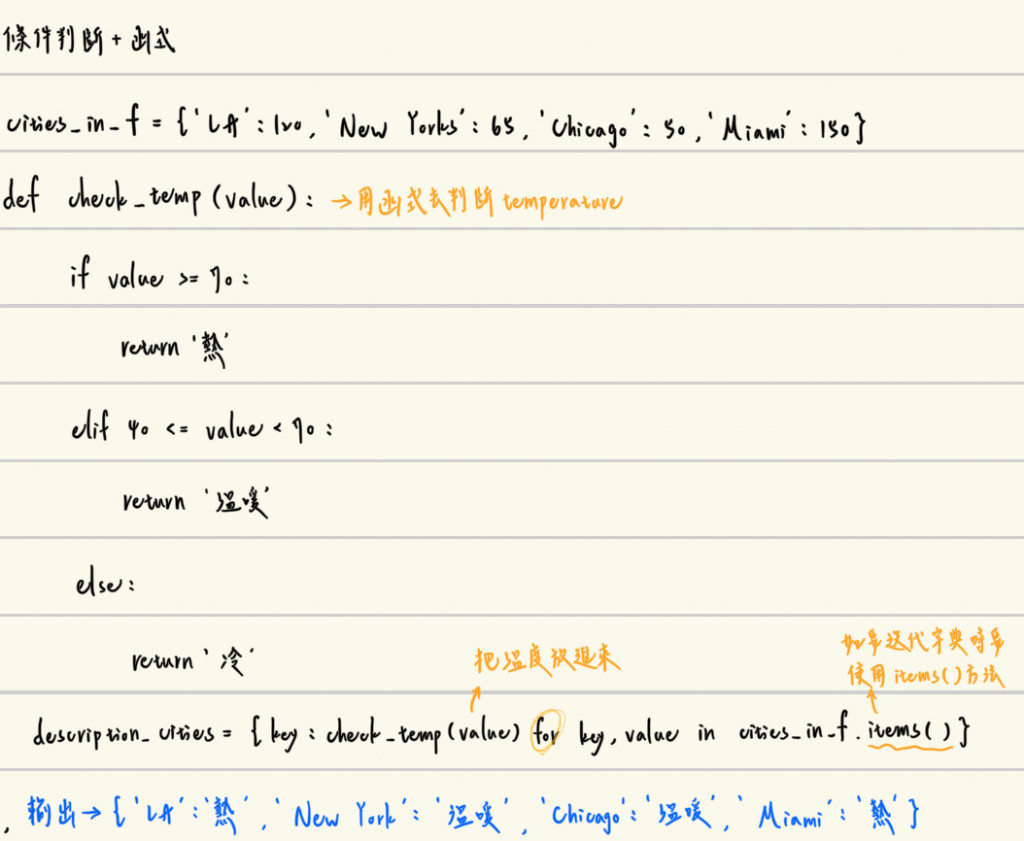 條件判斷 + 函式
cities_in_f = {'LA': 120, 'New Yorks': 65, 'Chicago': 50, 'Miami': 150}
def check_temp (value): → 用函式去判斷 temperature
if value >= 70:
return '熱'
elif 40 <= value < 70:
return '溫暖'
else:
return '冷'
把溫度放進來
如要迭代字典時要
使用 items() 方法
description_cities = { key : check_temp (value) for key, value in cities_in_f. items( ) }
輸出 → { 'LA': '熱', 'New York': '溫暖', 'Chicago': '溫暖', 'Miami': '熱' }